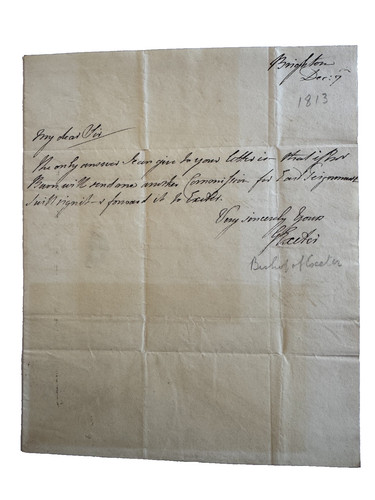 Brighton
Dec: 7
1813
My dear Sir
The only answer I can give to your letter is that if Mr
will send me another Commission for East Teignmouth
I will sign it & forward it to Exeter.
Very sincerely Yours
G Exeter
Bishop of Exeter